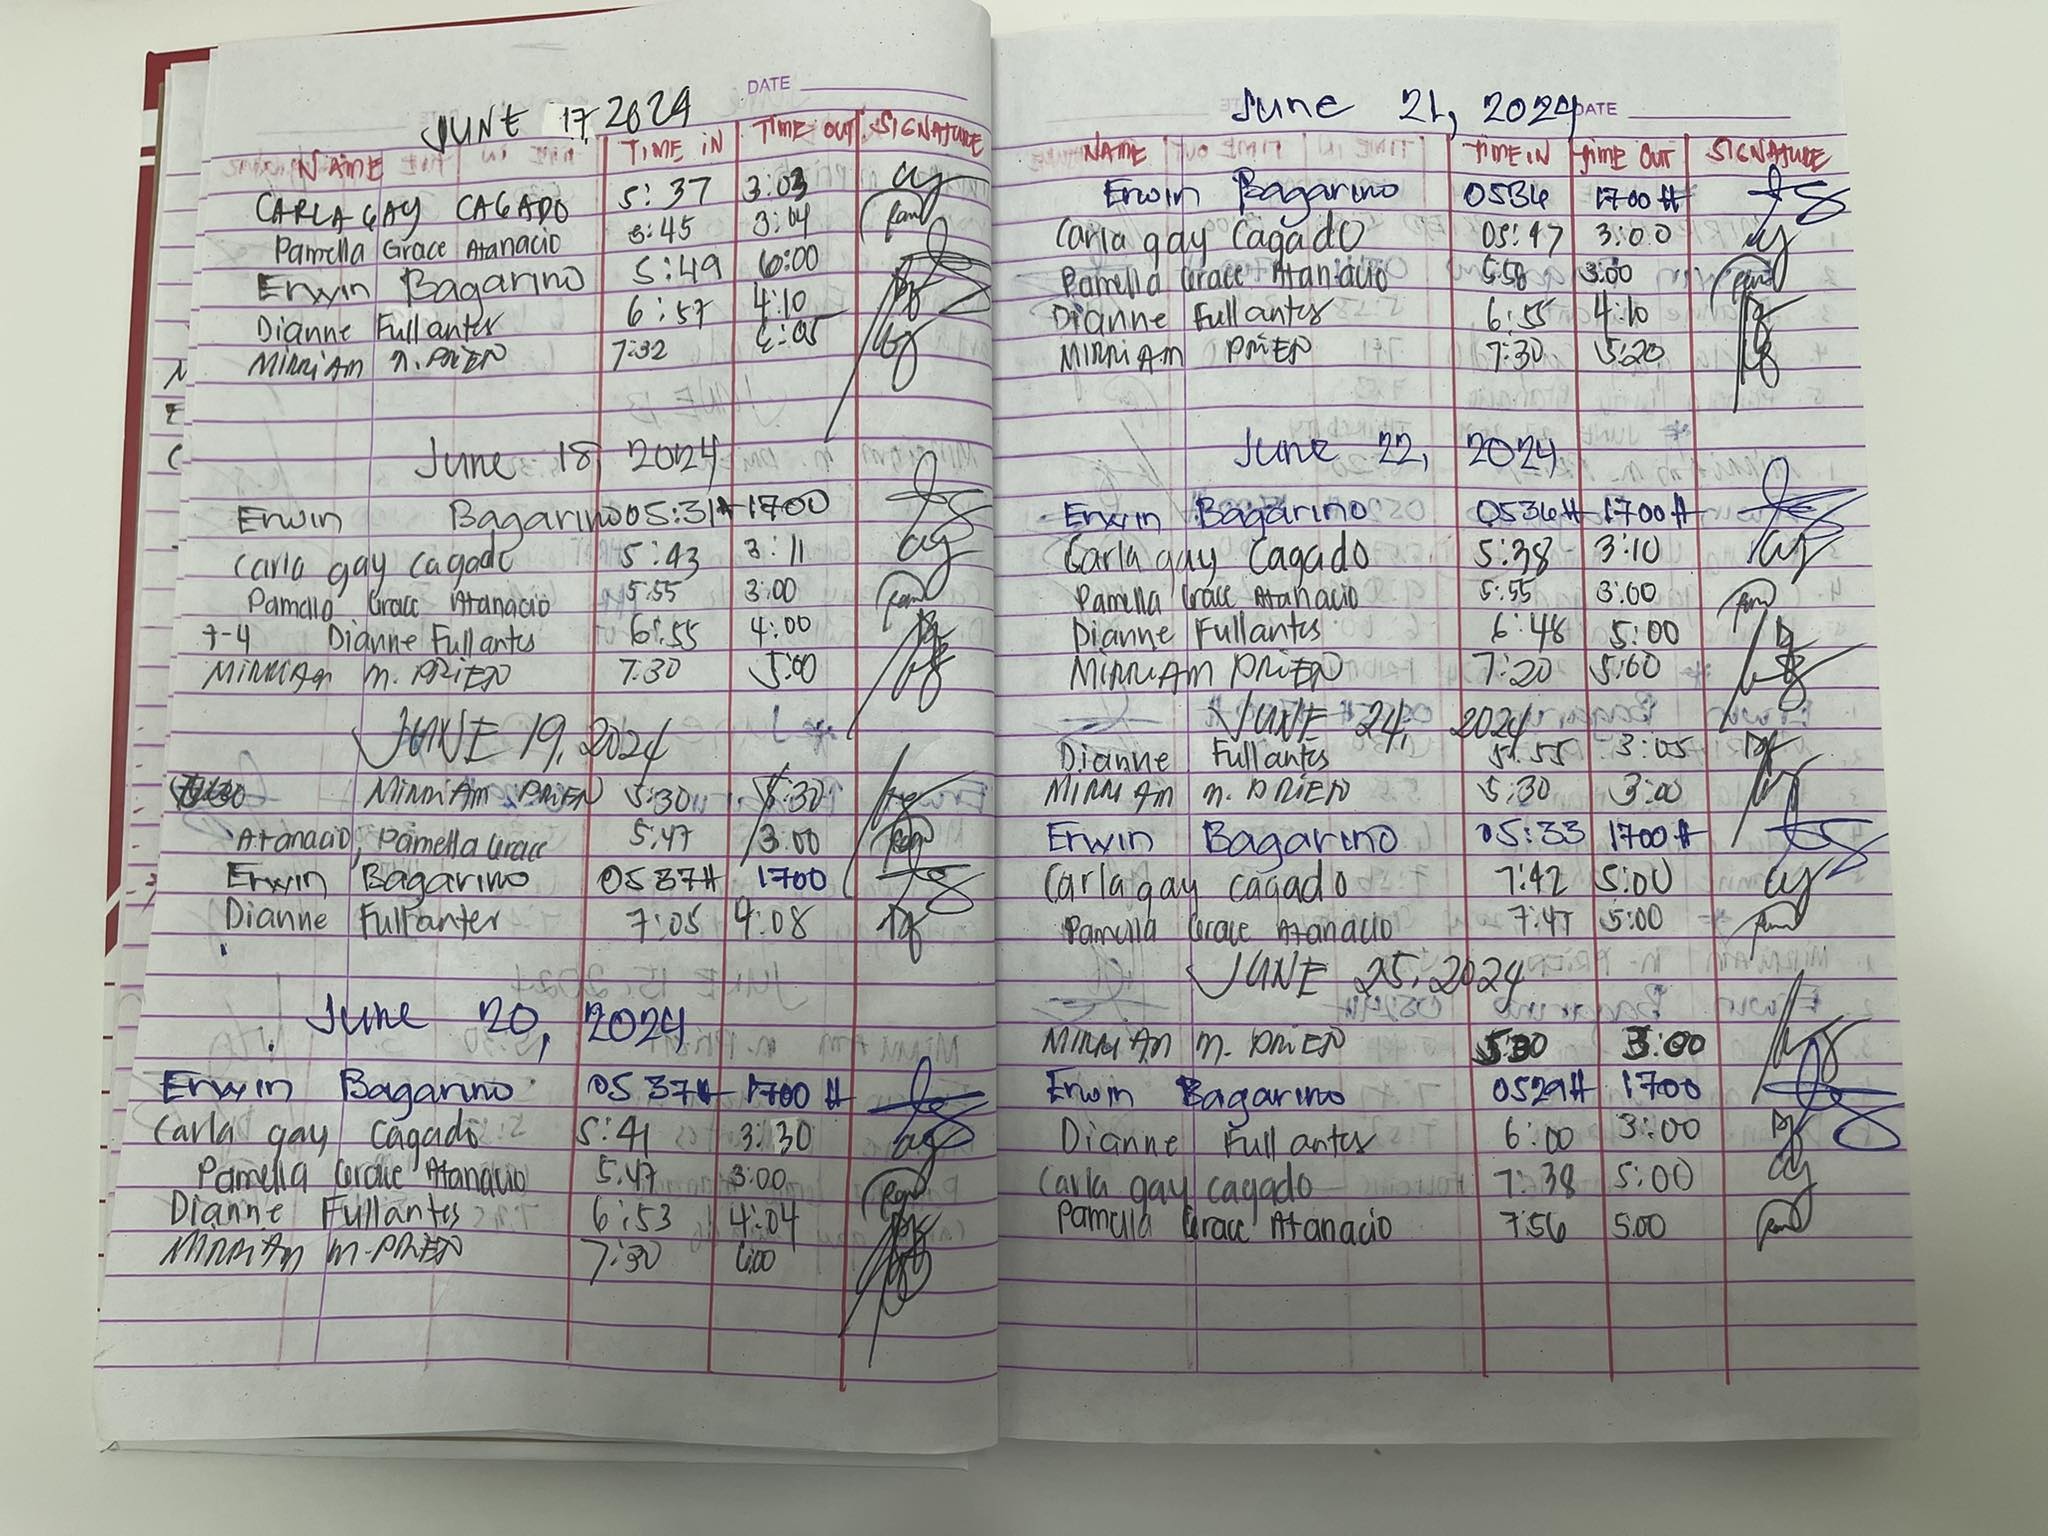 DATE
JUNE 17 2024
NAME TIME IN TIME OUT SIGNATURE
CARLA GAY CAGADO 5:37 3:03
Pamella Grace Atanacio 5:45 3:04
Erwin Bagarino 5:49 6:00
Dianne Fullantes 6:57 4:10
MIRRIAM M. PRIEN 7:32
June 18, 2024
Erwin Bagarino 05:31H 1700
Carla gay Cagado 5:43 3:11
Pamella Grace Atanacio 5:55 3:00
7-4 Dianne Fullantes 6:55 4:00
MIRRIAM M. PRIEN 7:30 5:00
JUNE 19, 2024
MIRRIAM PRIEN 5:30 5:30
Atanacio, Pamella Grace 5:47 3:00
Erwin Bagarino 0537H 1700
Dianne Fullantes 7:05 4:08
June 20, 2024
Erwin Bagarino 0537H 1700H
Carla gay Cagado 5:41 3:30
Pamella Grace Atanacio 5:47 3:00
Dianne Fullantes 6:53 4:04
MIRRIAM M. PRIEN 7:30 6:00
June 21, 2024 DATE
NAME TIME IN TIME OUT SIGNATURE
Erwin Bagarino 0536 1700H
Carla gay Cagado 05:47 3:00
Pamella Grace Atanacio 5:58 3:00
Dianne Fullantes 6:55 4:10
MIRRIAM PRIEN 7:30 5:20
June 22, 2024
Erwin Bagarino 0536H 1700H
Carla gay Cagado 5:38 3:10
Pamella Grace Atanacio 5:55 3:00
Dianne Fullantes 6:48 5:00
MIRRIAM PRIEN 7:20 5:00
JUNE 24, 2024
Dianne Fullantes 5:55 3:05
MIRRIAM M. PRIEN 5:30 3:00
Erwin Bagarino 05:33 1700H
Carla gay cagado 7:42 5:00
Pamella Grace Atanacio 7:47 5:00
JUNE 25, 2024
MIRRIAM M. PRIEN 5:30 3:00
Erwin Bagarino 0529H 1700
Dianne Fullantes 6:00 3:00
Carla gay cagado 7:38 5:00
Pamella Grace Atanacio 7:56 5:00